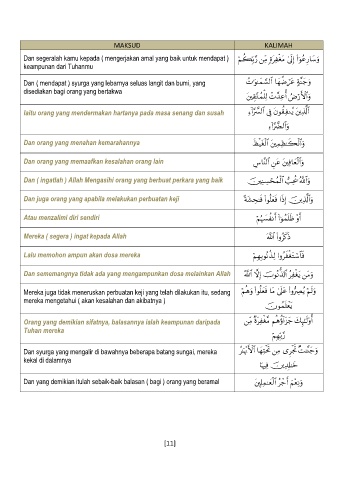 MAKSUD KALIMAH
Dan segeralah kamu kepada ( mengerjakan amal yang baik untuk mendapat ) وَسَارِعُوٓا۟ إِلَىٰ مَغْفِرَةٍ مِّن رَّبِّكُمْ
keampunan dari Tuhanmu
Dan ( mendapat ) syurga yang lebarnya seluas langit dan bumi, yang وَجَنَّةٍ عَرْضُهَا ٱلسَّمَٰوَٰتُ
disediakan bagi orang yang bertakwa وَٱلْأَرْضُ أُعِدَّتْ لِلْمُتَّقِينَ
Iaitu orang yang mendermakan hartanya pada masa senang dan susah ٱلَّذِينَ يُنفِقُونَ فِى ٱلسَّرَّآءِ
وَٱلضَّرَّآءِ
Dan orang yang menahan kemarahannya وَٱلْكَٰظِمِينَ ٱلْغَيْظَ
Dan orang yang memaafkan kesalahan orang lain وَٱلْعَافِينَ عَنِ ٱلنَّاسِ
Dan ( ingatlah ) Allah Mengasihi orang yang berbuat perkara yang baik وَٱللَّهُ يُحِبُّ ٱلْمُحْسِنِينَ
Dan juga orang yang apabila melakukan perbuatan keji وَٱلَّذِينَ إِذَا فَعَلُوا۟ فَٰحِشَةً
Atau menzalimi diri sendiri أَوْ ظَلَمُوٓا۟ أَنفُسَهُمْ
Mereka ( segera ) ingat kepada Allah ذَكَرُوا۟ ٱللَّهَ
Lalu memohon ampun akan dosa mereka فَٱسْتَغْفَرُوا۟ لِذُنُوبِهِمْ
Dan sememangnya tidak ada yang mengampunkan dosa melainkan Allah وَمَن يَغْفِرُ ٱلذُّنُوبَ إِلَّا ٱللَّهُ
Mereka juga tidak meneruskan perbuatan keji yang telah dilakukan itu, sedang وَلَمْ يُصِرُّوا۟ عَلَىٰ مَا فَعَلُوا۟ وَهُمْ
mereka mengetahui ( akan kesalahan dan akibatnya ) يَعْلَمُونَ
Orang yang demikian sifatnya, balasannya ialah keampunan daripada أُو۟لَٰٓئِكَ جَزَآؤُهُم مَّغْفِرَةٌ مِّن
Tuhan mereka رَّبِّهِمْ
Dan syurga yang mengalir di bawahnya beberapa batang sungai, mereka وَجَنَّٰتٌ تَجْرِى مِن تَحْتِهَا ٱلْأَنْهَٰرُ
kekal di dalamnya خَٰلِدِينَ فِيهَا
Dan yang demikian itulah sebaik-baik balasan ( bagi ) orang yang beramal وَنِعْمَ أَجْرُ ٱلْعَٰمِلِينَ
[11]